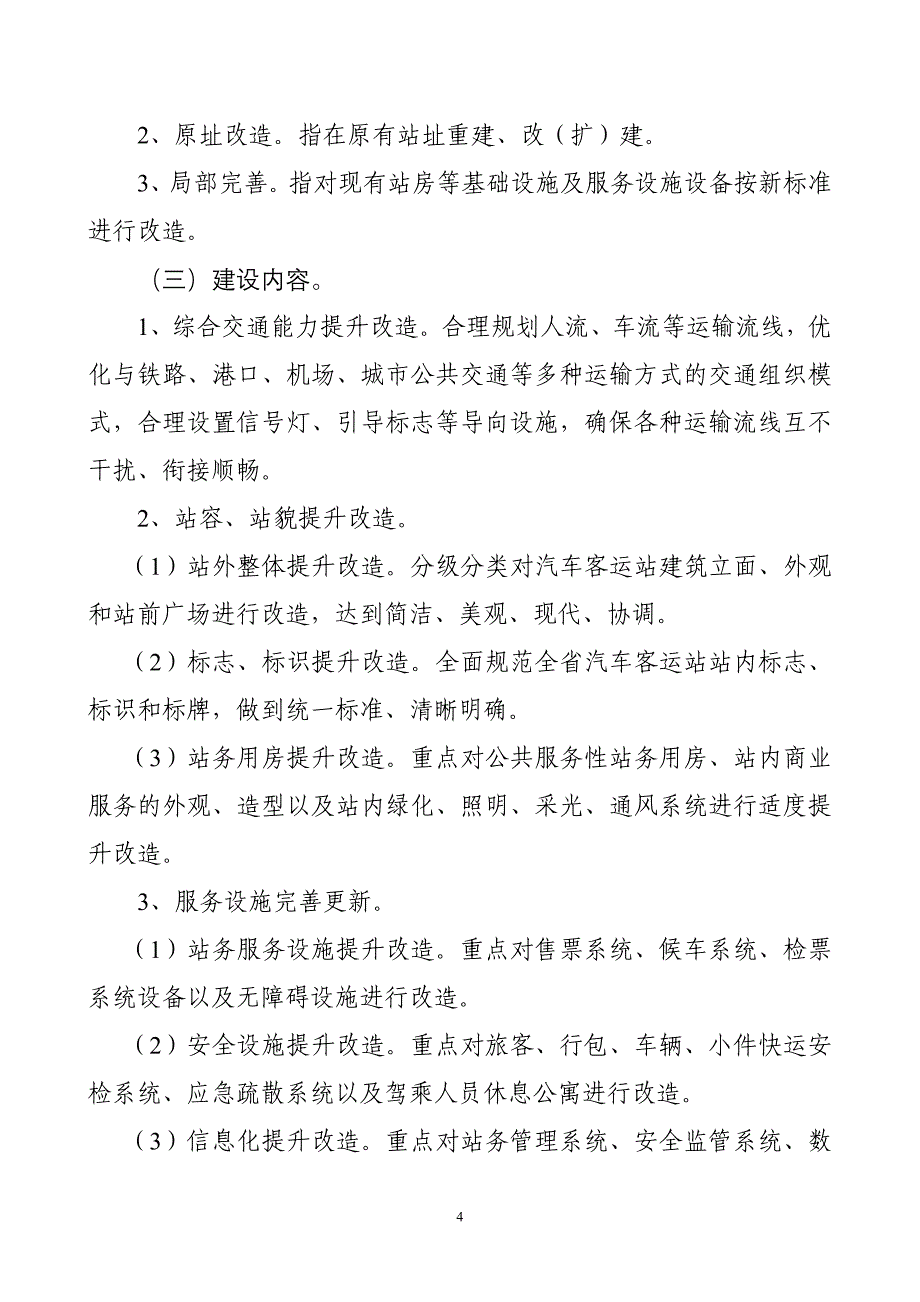 2、原址改造。指在原有站址重建、改（扩）建。
3、局部完善。指对现有站房等基础设施及服务设施设备按新标准
进行改造。
（三）建设内容。
1、综合交通能力提升改造。合理规划人流、车流等运输流线，优
化与铁路、港口、机场、城市公共交通等多种运输方式的交通组织模
式，合理设置信号灯、引导标志等导向设施，确保各种运输流线互不
干扰、衔接顺畅。
2、站容、站貌提升改造。
（1）站外整体提升改造。分级分类对汽车客运站建筑立面、外观
和站前广场进行改造，达到简洁、美观、现代、协调。
（2）标志、标识提升改造。全面规范全省汽车客运站站内标志、
标识和标牌，做到统一标准、清晰明确。
（3）站务用房提升改造。重点对公共服务性站务用房、站内商业
服务的外观、造型以及站内绿化、照明、采光、通风系统进行适度提
升改造。
3、服务设施完善更新。
（1）站务服务设施提升改造。重点对售票系统、候车系统、检票
系统设备以及无障碍设施进行改造。
（2）安全设施提升改造。重点对旅客、行包、车辆、小件快运安
检系统、应急疏散系统以及驾乘人员休息公寓进行改造。
（3）信息化提升改造。重点对站务管理系统、安全监管系统、数
4